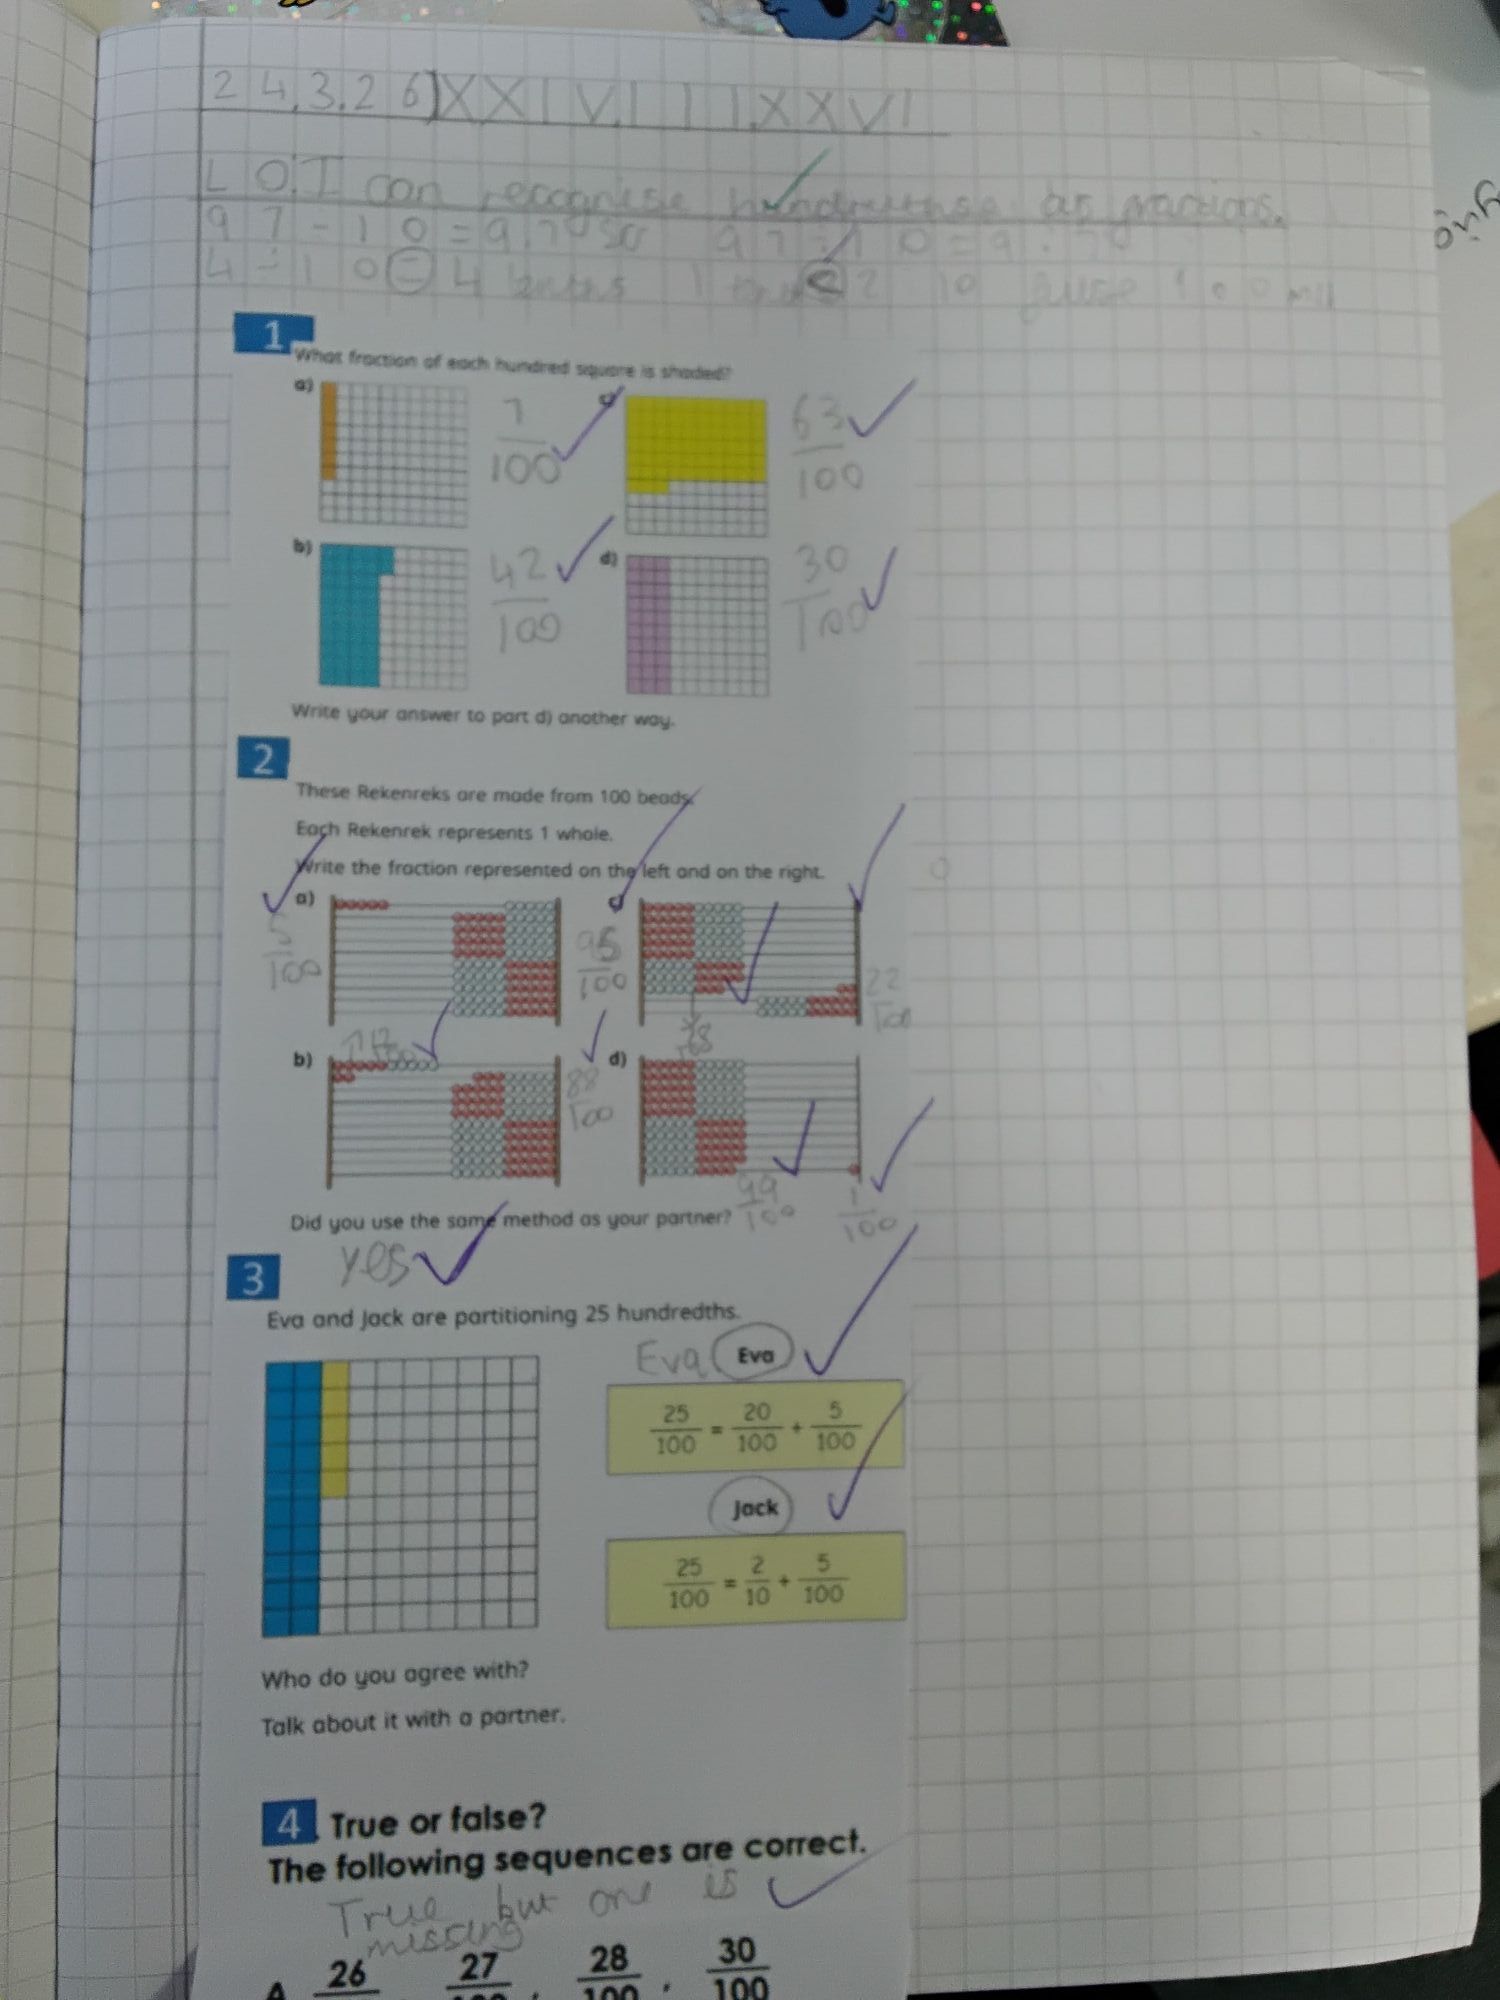 24.3.26) XXIV.III.XXVI
L O: I can recognise as fractions.
97 - 10 = 9.7 97 ÷ 10 = 9.7
4 ÷ 10 = 4
1
What fraction of each hundred square is shaded?
a) 7/100 c) 63/100
b) 42/100 d) 30/100
Write your answer to part d) another way.
2
These Rekenreks are made from 100 beads.
Each Rekenrek represents 1 whole.
Write the fraction represented on the left and on the right.
a) 5/100 95/100 c) 78/100 22/100
b) 12/100 88/100 d) 99/100 1/100
Did you use the same method as your partner?
yes
3
Eva and Jack are partitioning 25 hundredths.
Eva Eva
25/100 = 20/100 + 5/100
Jack
25/100 = 2/10 + 5/100
Who do you agree with?
Talk about it with a partner.
4 True or false?
The following sequences are correct.
True but one is
missing
A 26 27/100 , 28/100 , 30/100